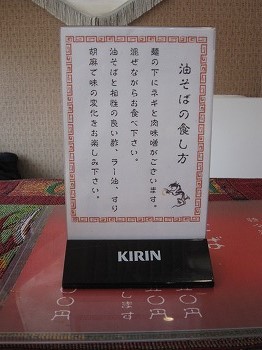 油そばの食し方
麺の下にネギと肉味噌がございます。
混ぜながらお食べ下さい。
油そばと相性の良い酢、ラー油、すり
胡麻で味の変化をお楽しみ下さい。
KIRIN